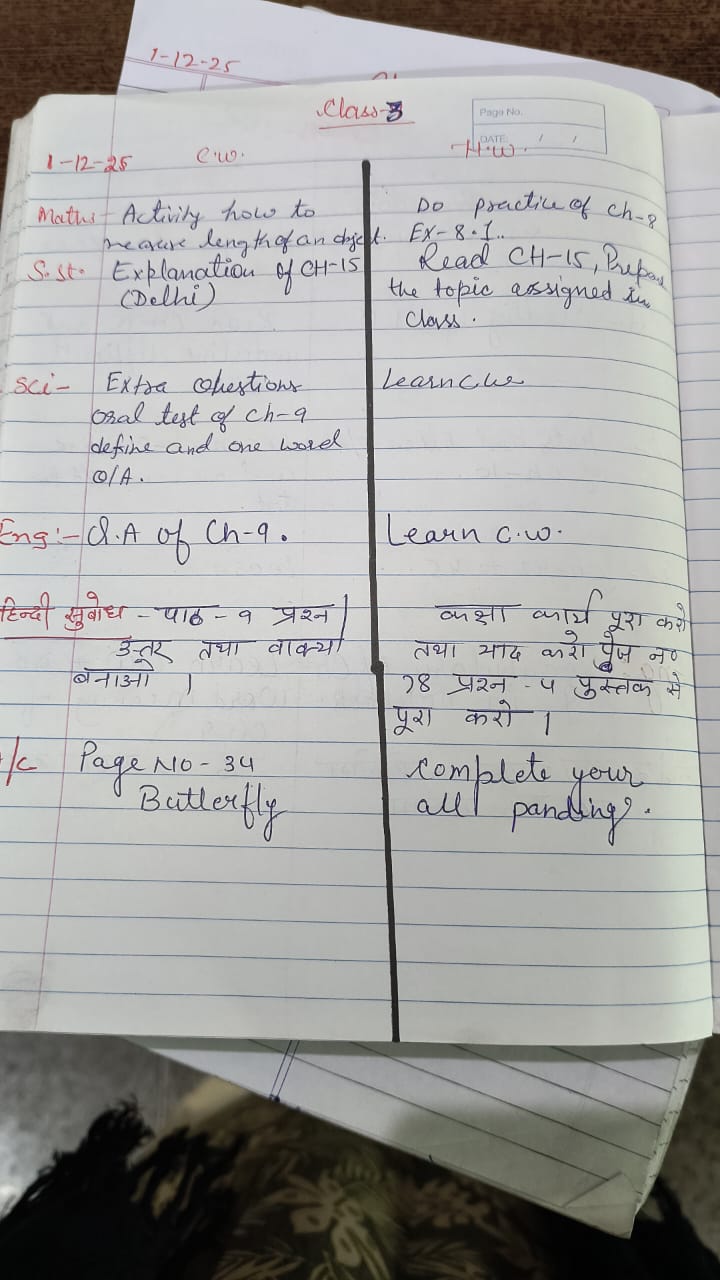 1-12-25
Class-3
Page No.
DATE: / /
1-12-25 C.W. H.W.
Maths- Activity how to
measure length of an object.
Do practice of Ch-8
EX-8.1..
S.st. Explanation of CH-15
(Delhi)
Read CH-15, Prepare
the topic assigned in
class.
Sci- Extra Questions
oral test of ch-9
define and one word
Q/A.
Learn C.W
Eng:- Q.A of Ch-9.
Learn C.W.
हिन्दी सुबोध - पाठ - ९ प्रश्न
उत्तर तथा वाक्य
बनाओ ।
कक्षा कार्य पूरा करो
तथा याद करो पेज न०
७८ प्रश्न - ५ पुस्तक से
पूरा करो ।
/c Page NO - 34
Butterfly
complete your
all panding.